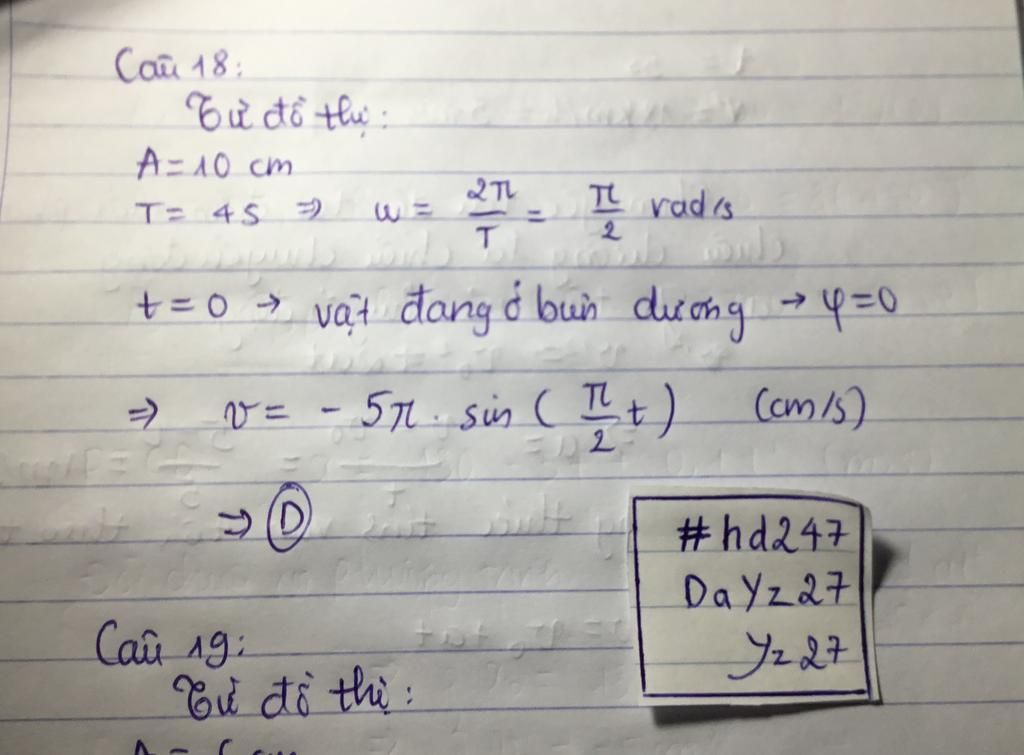 Câu 18:
Từ đồ thị:
A = 10 cm
T = 4s ⇒ ω = 2π/T = π/2 rad/s
t = 0 → vật đang ở biên dương → φ = 0
⇒ v = - 5π . sin ( π/2 t ) (cm/s)
⇒ D
#hd247
DaYz27
Yz27
Câu 19:
Từ đồ thị: